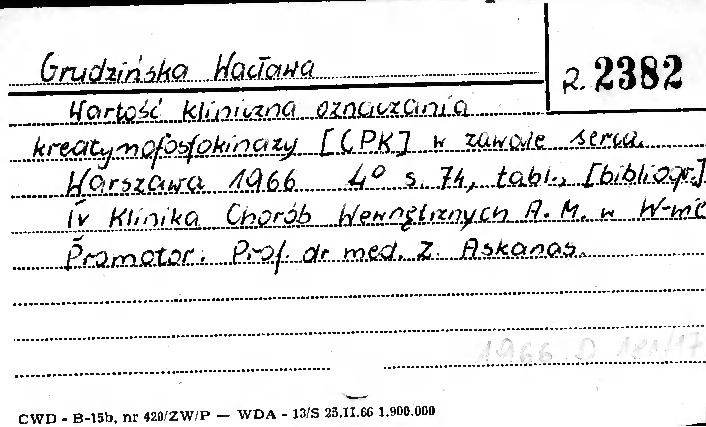 Grudzińska Wacława
R. 2382
Wartość kliniczna oznaczania
kreatynofosfokinazy [CPK] w zawale serca.
Warszawa 1966 4° s. 74, tabl., [bibliogr.]
IV Klinika Chorób Wewnętrznych A. M. w W-wie
Promotor: Prof. dr med. Z. Askanas.
1966 D 181/17
CWD - B-15b, nr 420/ZW/P — WDA - 13/S 25.II.66 1.900.000